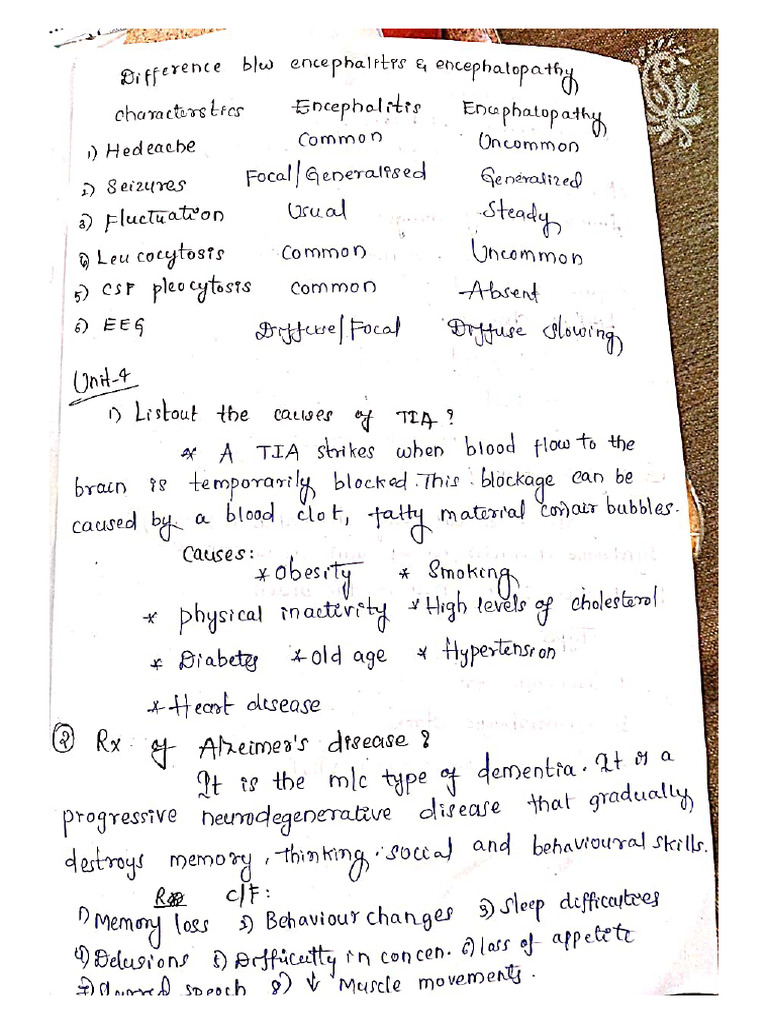 Difference b/w encephalitis & encephalopathy
characterstics Encephalitis Encephalopathy
1) Hedeache Common Uncommon
2) Seizures Focal/Generalised Generalized
3) Fluctuation Usual Steady
4) Leucocytosis Common Uncommon
5) CSF pleocytosis common Absent
6) EEG Diffuse/Focal Diffuse slowing
Unit-4
1) Listout the causes of TIA?
* A TIA strikes when blood flow to the
brain is temporarily blocked. This blockage can be
caused by a blood clot, fatty material (or) air bubbles.
causes:
* Obesity * Smoking
* physical inactivity * High levels of cholesterol
* Diabetes * old age * Hypertension
* Heart disease
2 Rx of Alzeimer's disease?
It is the m/c type of dementia. It is a
progressive neurodegenerative disease that gradually
destroys memory, thinking, social and behavioural skills.
C/F:
1) Memory loss 2) Behaviour changes 3) Sleep difficulties
4) Delusions 5) Difficulty in concen. 6) loss of appetite
7) Slurred speech 8) ↓ Muscle movements.